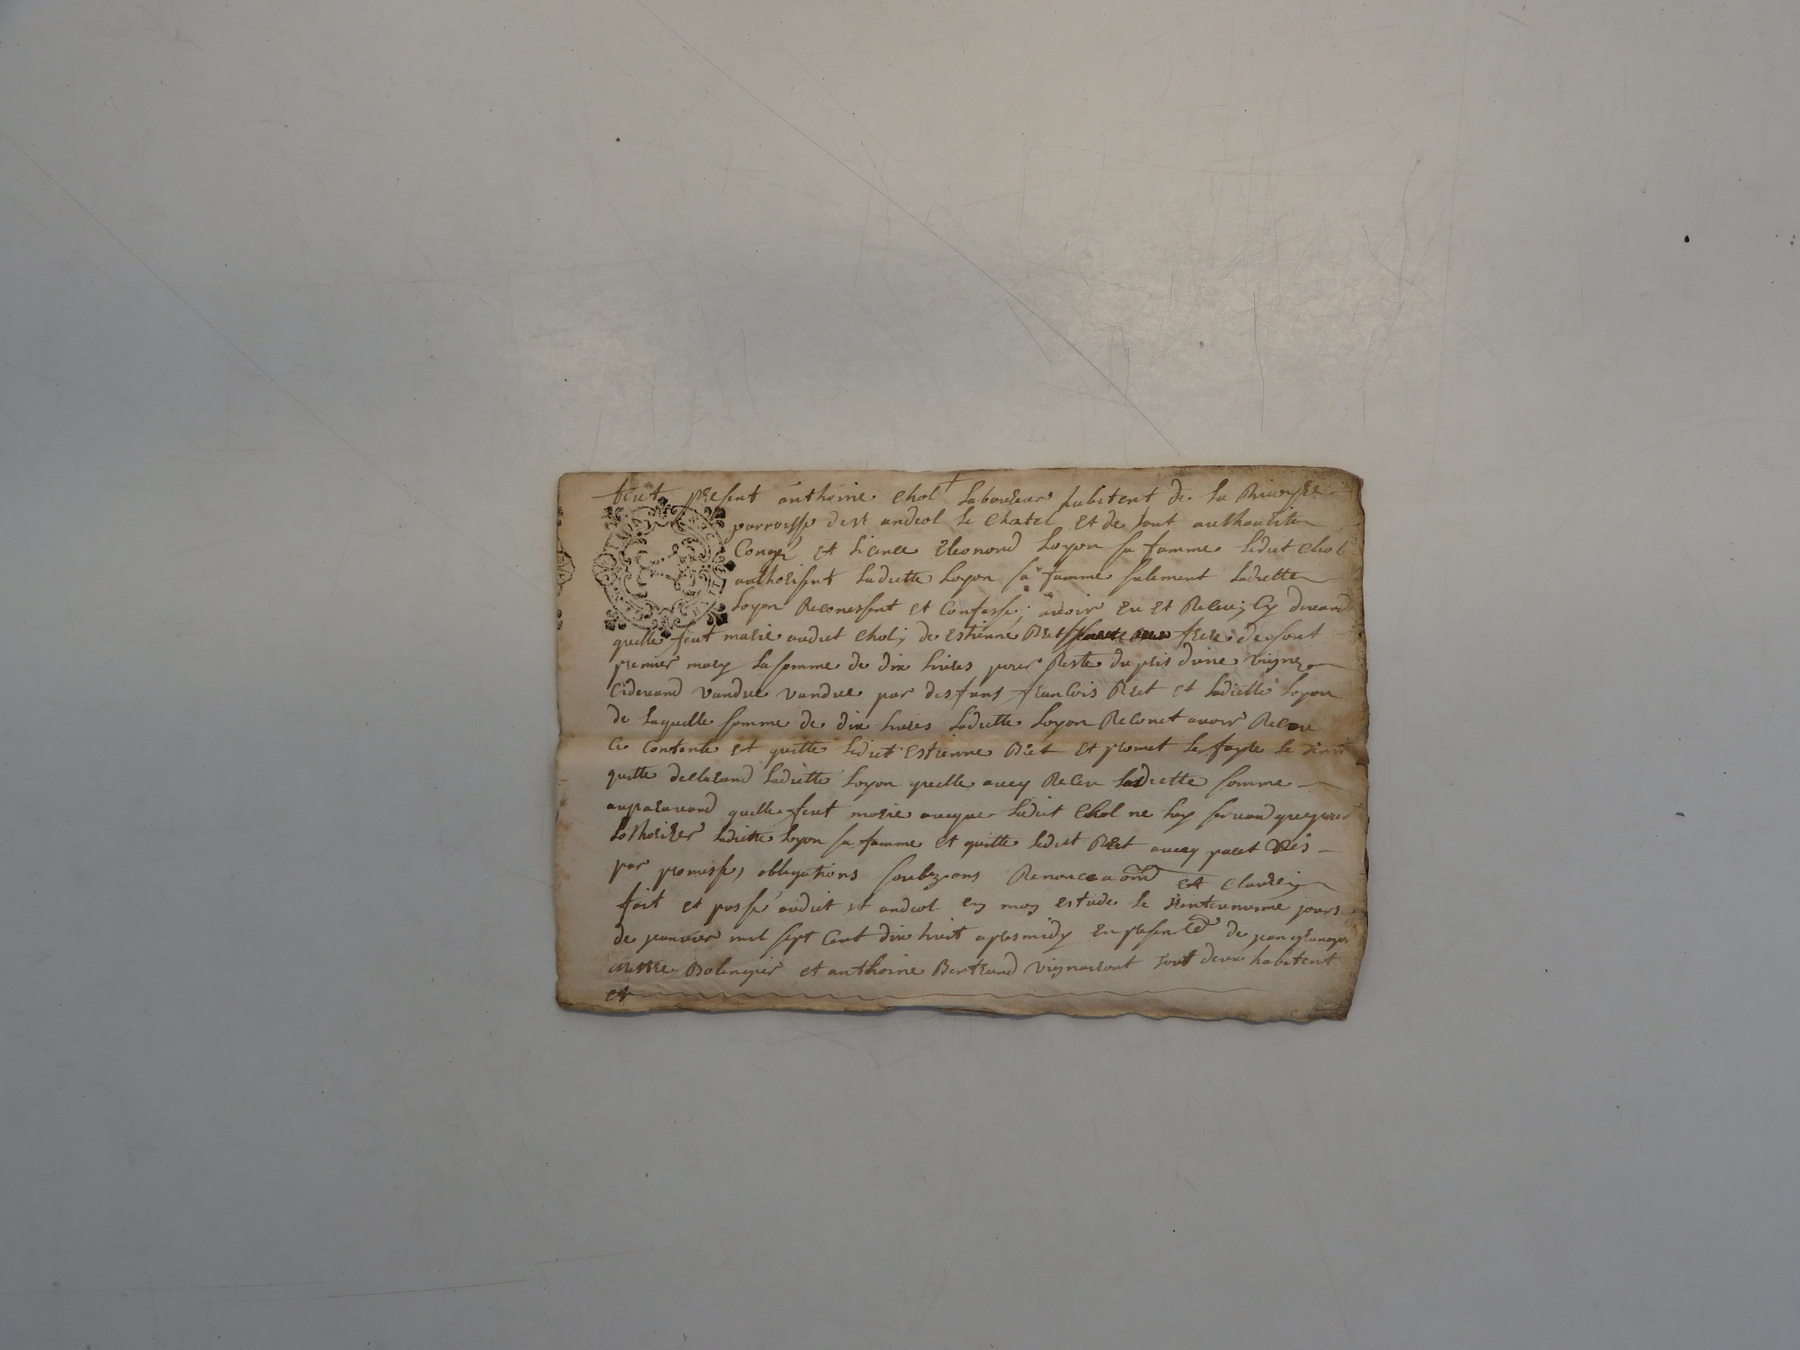 feut present anthoine chol laboureur habitent de la
parroisse de st andeol le chatel et de sont authorite
Congé et licance eleonord loyon sa famme ledict chol
authorisent ladictte loyon sa famme sulement ladictte
loyon Reconessent et Confesse avoir eu et Receu cy devand
quelle feut marie audict chol de estienne Bret frere de sont
premier mary la somme de dix livres pour Reste du pris dune vigne
cidevand vandue vandue par desfuns francois Bret et ladictte loyon
de laquelle somme de dix livres ladictte loyon Reconet avoir Receu
ce contente et quitte ledict estienne Bret et promet le fayre le tenir
quitte declarand ladictte loyon quelle avey Receu ladictte somme
auparavand quelle feut marie avecque ledict chol ne
lothoriser ladictte loyon sa famme et quitte ledict Bret
par promesse, obligations Renonce a et
fait et passé audict st andeol en mon estude le jour
de janvier mil sept cent dix huit apres midy en presence de jean
mettre Bolengier et anthoine Bertrand vigneront tout deux habitent
et